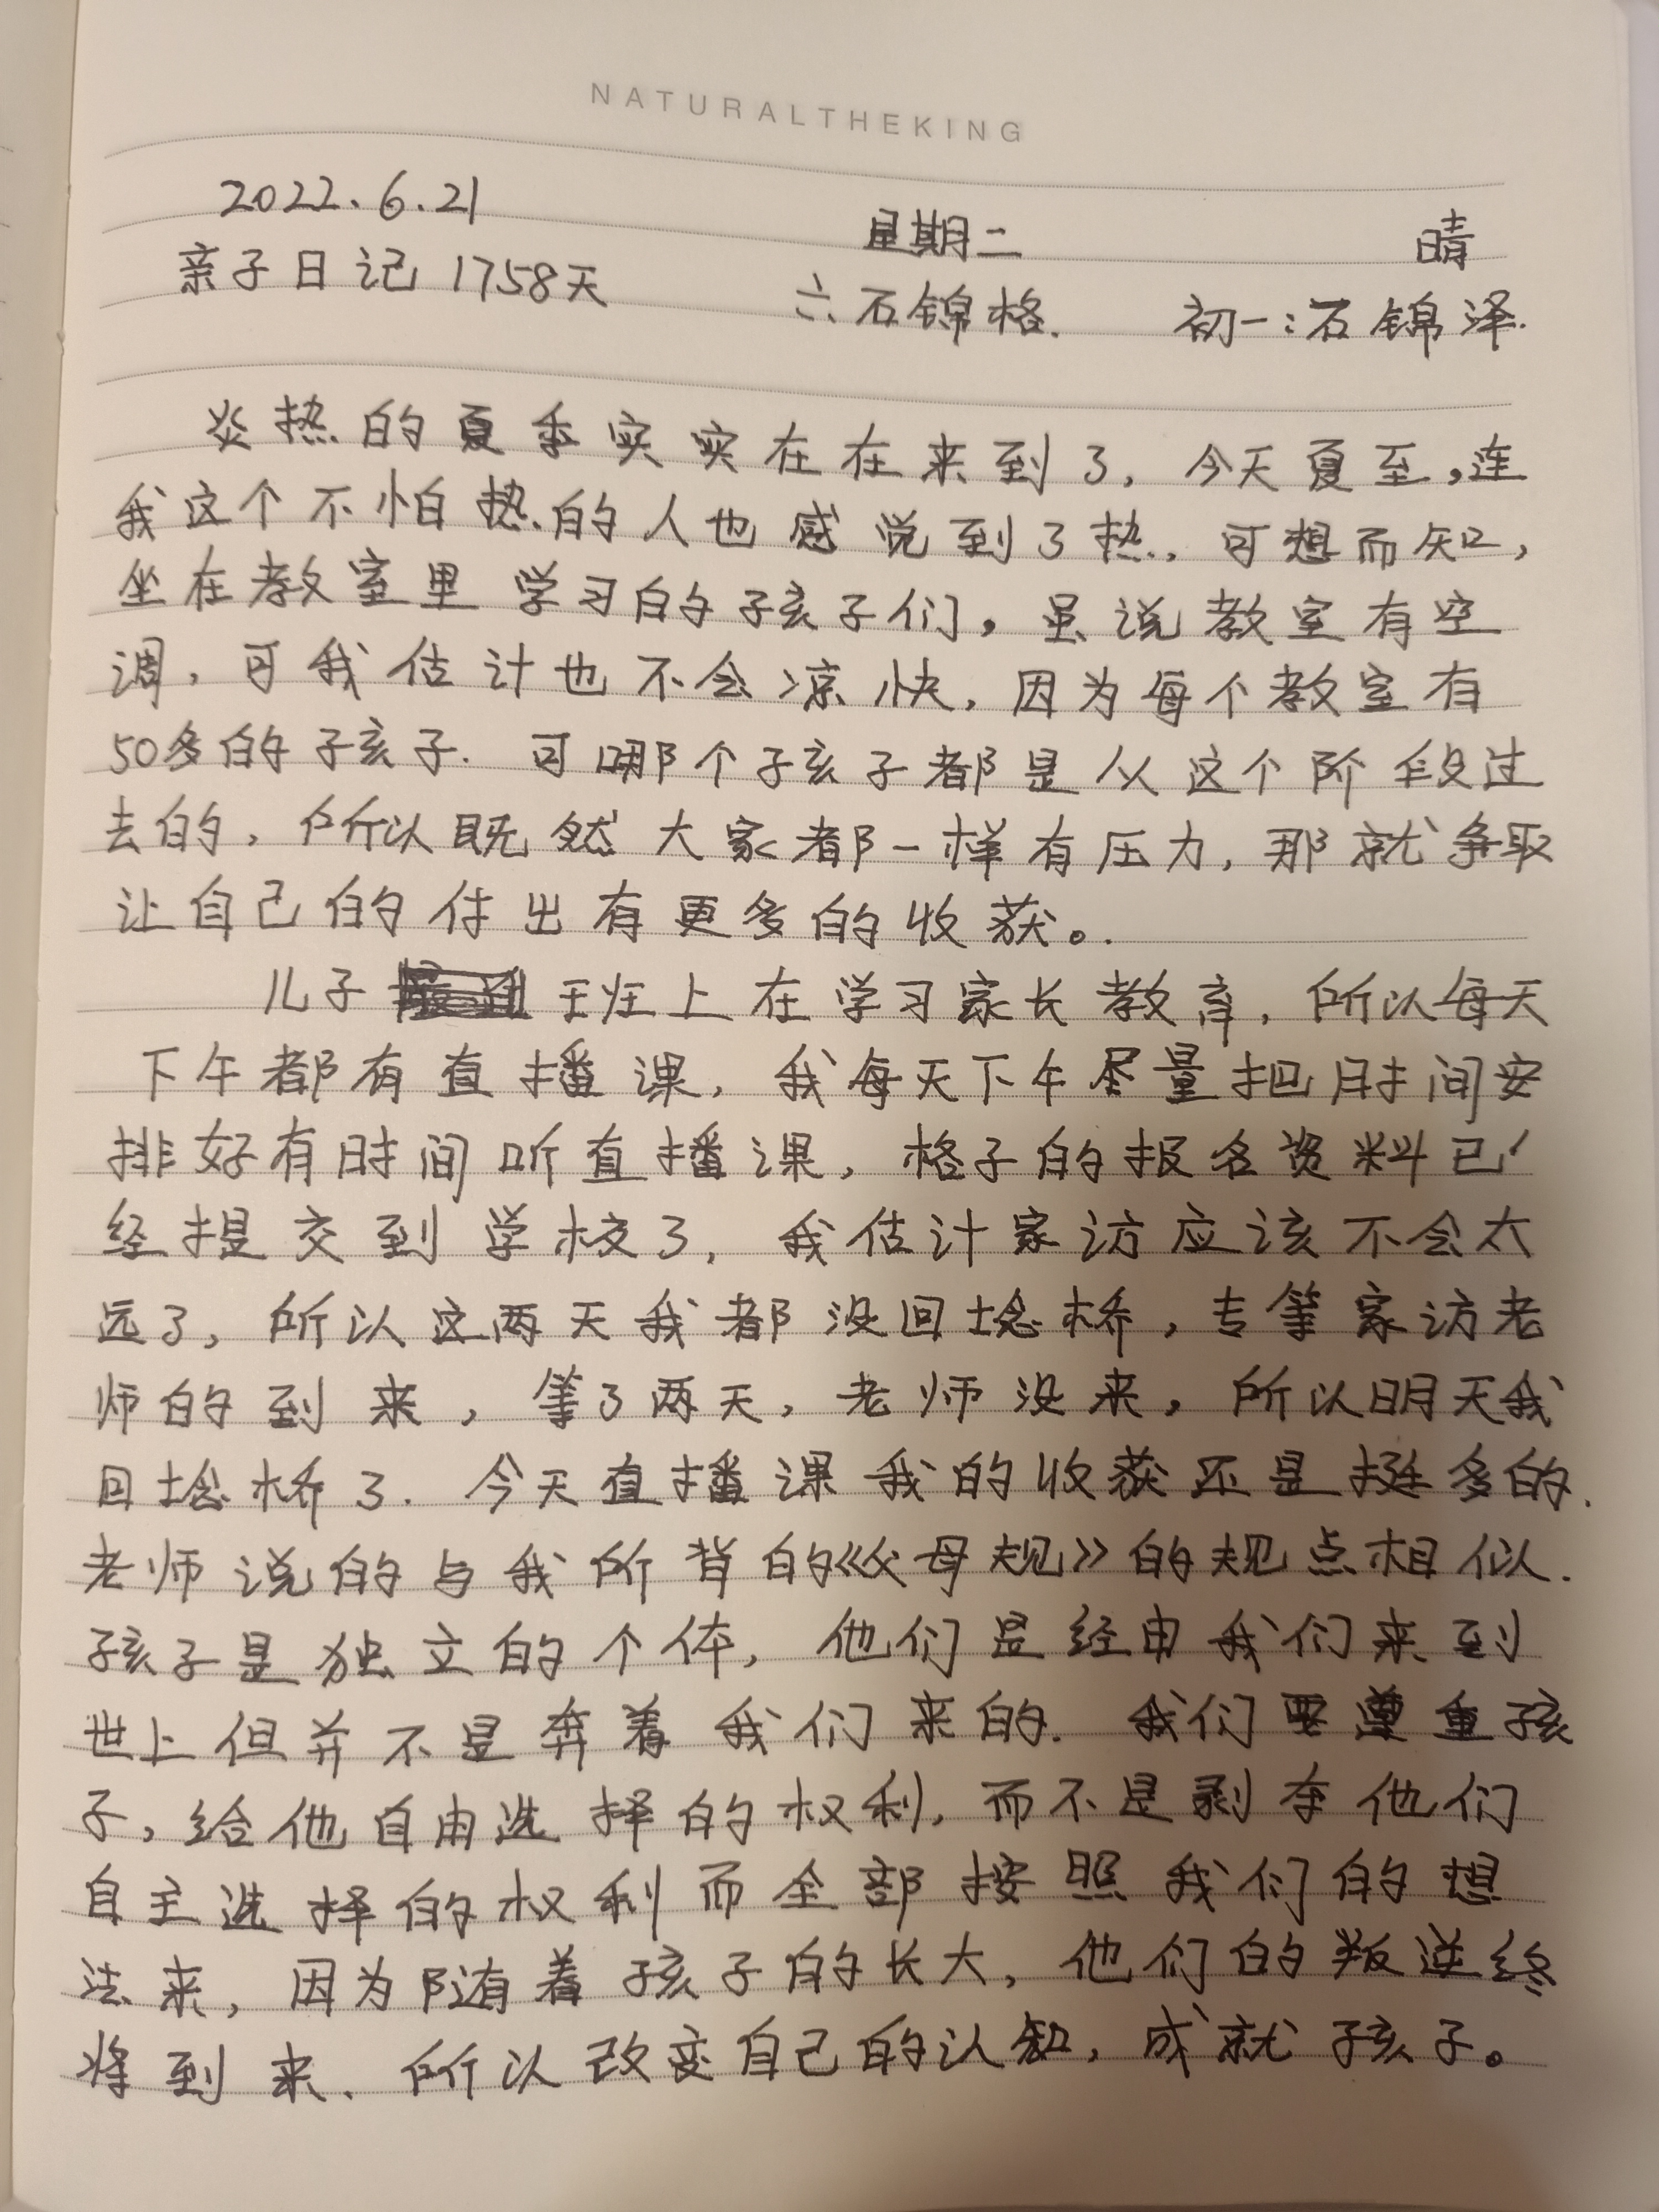 NATURALTHEKING
2022.6.21 星期二 晴
亲子日记1758天 六:石锦格. 初一:石锦泽.
炎热的夏季实实在在来到了,今天夏至,连
我这个不怕热的人也感觉到了热,可想而知,
坐在教室里学习的孩子们,虽说教室有空
调,可我估计也不会凉快,因为每个教室有
50多的孩子.可哪个孩子都是从这个阶段过
去的,所以既然大家都一样有压力,那就争取
让自己的付出有更多的收获。
儿子 班上在学习家长教育,所以每天
下午都有直播课,我每天下午尽量把时间安
排好有时间听直播课,格子的报名资料已
经提交到学校了,我估计家访应该不会太
远了,所以这两天我都没回埝桥,专等家访老
师的到来,等了两天,老师没来,所以明天我
回埝桥了.今天直播课我的收获还是挺多的.
老师说的与我所背的《父母规》的规点相似.
孩子是独立的个体,他们是经由我们来到
世上但并不是奔着我们来的.我们要遵重孩
子,给他自由选择的权利,而不是剥夺他们
自主选择的权利而全部按照我们的想
法来,因为随着孩子的长大,他们的叛逆终
将到来.所以改变自己的认知,成就孩子。